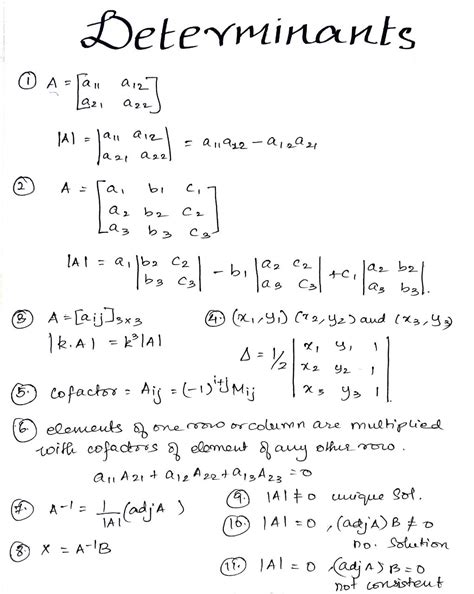 Determinants
① A = [a11 a12
a21 a22]
|A| = |a11 a12
a21 a22| = a11a22 - a12a21
② A = [a1 b1 c1
a2 b2 c2
a3 b3 c3]
|A| = a1 |b2 c2
b3 c3| - b1 |a2 c2
a3 c3| + c1 |a2 b2
a3 b3|.
③ A = [aij]3×3
|k.A| = k³|A|
④. (x1, y1) (x2, y2) and (x3, y3)
Δ = 1/2 |x1 y1 1
x2 y2 1
x3 y3 1|
⑤. cofactor = Aij = (-1)^i+j Mij
⑥. elements of one row or column are multiplied
with cofactors of element of any other row.
a11 A21 + a12 A22 + a13 A23 = 0
⑦. A⁻¹ = 1/|A| (adj A)
⑧. X = A⁻¹B
⑨. |A| ≠ 0 unique Sol.
⑩. |A| = 0, (adj A) B ≠ 0
no. Solution
⑪. |A| = 0 (adj A) B = 0
not consistent